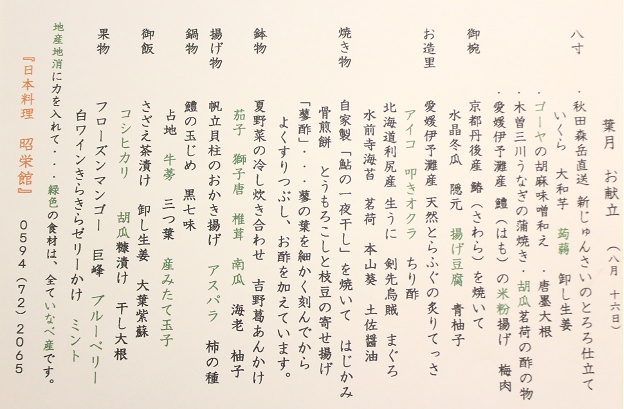 葉月 お献立 (八月 十六日)
八寸 ・秋田森岳直送 新じゅんさいのとろろ仕立て
いくら 大和芋 蒟蒻 卸し生姜
・ゴーヤの胡麻味噌和え ・唐墨大根
・木曽三川うなぎの蒲焼き・胡瓜茗荷の酢の物
・愛媛伊予灘産 鱧(はも)の米粉揚げ 梅肉
御椀 京都丹後産 鰆(さわら)を焼いて
水晶冬瓜 隠元 揚げ豆腐 青柚子
お造里 愛媛伊予灘産 天然とらふぐの炙りてっさ
アイコ 叩きオクラ ちり酢
北海道利尻産 生うに 剣先烏賊 まぐろ
水前寺海苔 茗荷 本山葵 土佐醤油
焼き物 自家製「鮎の一夜干し」を焼いて はじかみ
骨煎餅 とうもろこしと枝豆の寄せ揚げ
「蓼酢」・・・蓼の葉を細かく刻んでから
よくすりつぶし、お酢を加えています。
鉢物 夏野菜の冷し炊き合わせ 吉野葛あんかけ
茄子 獅子唐 椎茸 南瓜 海老 柚子
揚げ物 帆立貝柱のおかき揚げ アスパラ 柿の種
鍋物 鱧の玉じめ 黒七味
占地 牛蒡 三つ葉 産みたて玉子
御飯 さざえ茶漬け 卸し生姜 大葉紫蘇
コシヒカリ 胡瓜糠漬け 干し大根
果物 フローズンマンゴー 巨峰 ブルーベリー
白ワインきらきらゼリーかけ ミント
地産地消に力を入れて・・・緑色の食材は、全ていなべ産です。
『日本料理 昭栄館』 0594(72)2065